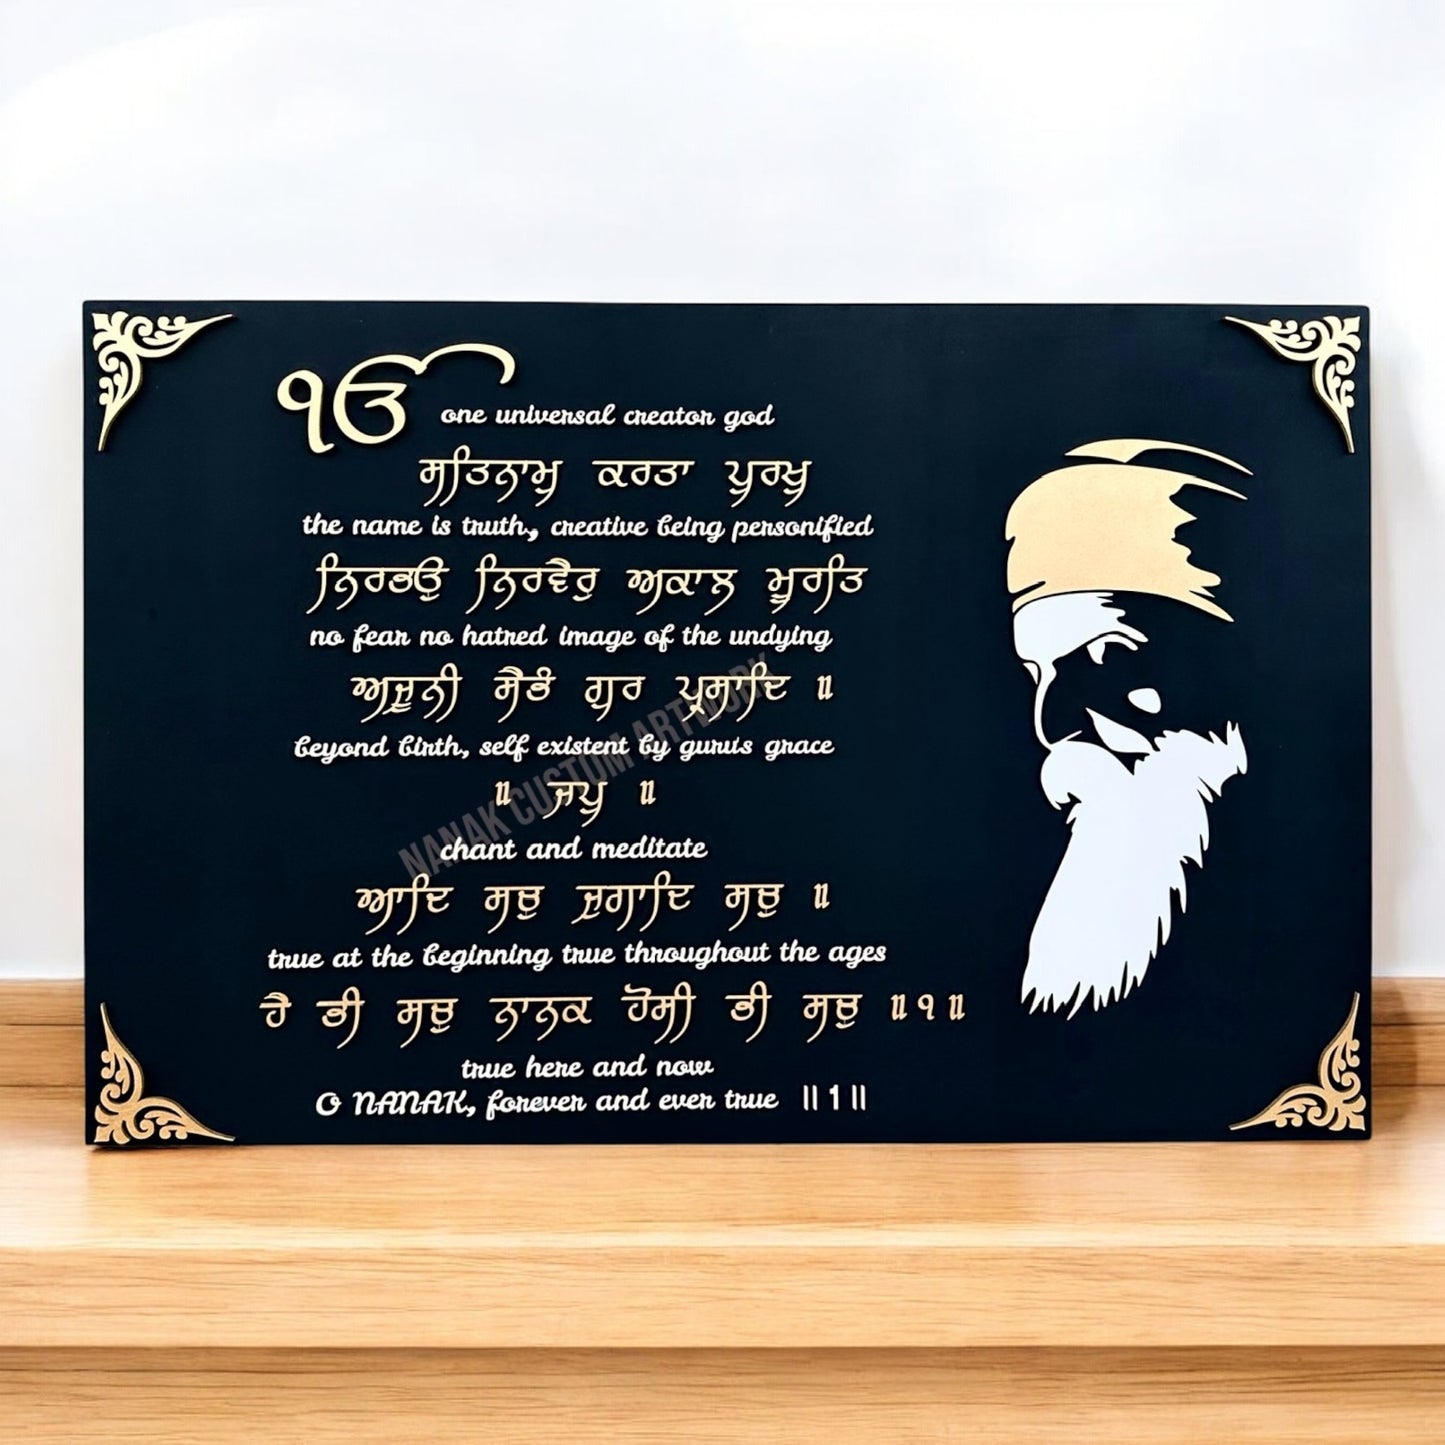 ੴ one universal creator god
ਸਤਿਨਾਮੁ ਕਰਤਾ ਪੁਰਖੁ
the name is truth, creative being personified
ਨਿਰਭਉ ਨਿਰਵੈਰੁ ਅਕਾਲ ਮੂਰਤਿ
no fear no hatred image of the undying
ਅਜੂਨੀ ਸੈਭੰ ਗੁਰ ਪ੍ਰਸਾਦਿ ॥
beyond birth, self existent by guru's grace
॥ ਜਪੁ ॥
chant and meditate
ਆਦਿ ਸਚੁ ਜੁਗਾਦਿ ਸਚੁ ॥
true at the beginning true throughout the ages
ਹੈ ਭੀ ਸਚੁ ਨਾਨਕ ਹੋਸੀ ਭੀ ਸਚੁ ॥੧॥
true here and now
O NANAK, forever and ever true ||1||
NANAK CUSTOM ARTWORK